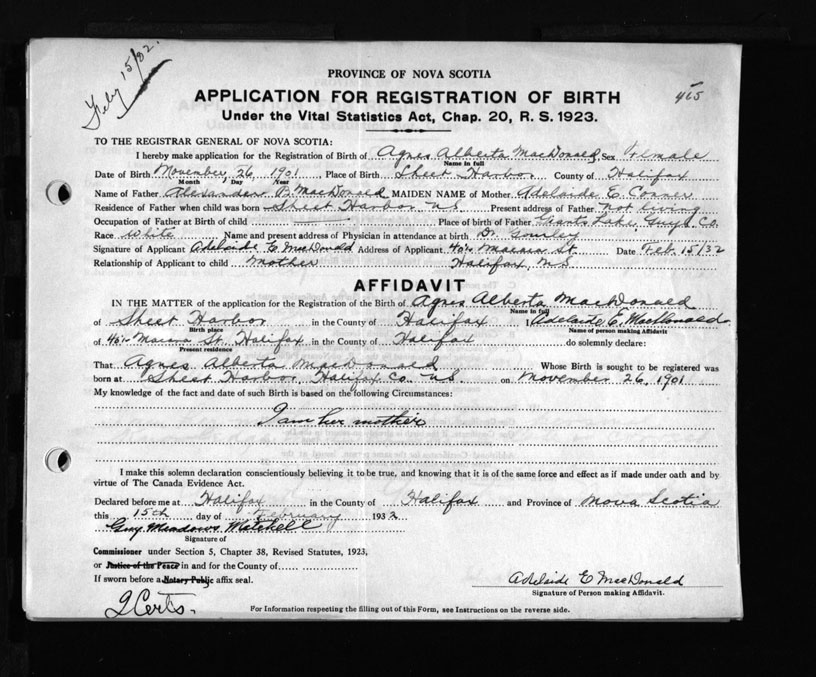 Feby 15/32.
PROVINCE OF NOVA SCOTIA
APPLICATION FOR REGISTRATION OF BIRTH
Under the Vital Statistics Act, Chap. 20, R. S. 1923.
TO THE REGISTRAR GENERAL OF NOVA SCOTIA:
I hereby make application for the Registration of Birth of Agnes Alberta MacDonald Sex Female
Name in full
Date of Birth November 26, 1901 Place of Birth Sheet Harbor County of Halifax
Month Day Year
Name of Father Alexander B. MacDonald MAIDEN NAME of Mother Adelaide E. Conner
Residence of Father when child was born Sheet Harbor N.S. Present address of Father Not living
Occupation of Father at Birth of child Place of Birth of Father Giants Lake, Guys. Co.
Race White Name and present address of Physician in attendance at birth Dr.
Signature of Applicant Adelaide E MacDonald Address of Applicant St. Date Feb. 15/32
Relationship of Applicant to child Mother Halifax, N.S.
AFFIDAVIT
IN THE MATTER of the application for the Registration of the Birth of Agnes Alberta MacDonald
Name in full
of Sheet Harbor in the County of Halifax I Adelaide E. MacDonald
Birth place Name of person making Affidavit
of St. Halifax in the County of Halifax do solemnly declare:
Present residence
That Agnes Alberta MacDonald Whose Birth is sought to be registered was
born at Sheet Harbor, Halifax Co. N.S. on November 26, 1901
My knowledge of the fact and date of such Birth is based on the following Circumstances:
I am her mother
I make this solemn declaration conscientiously believing it to be true, and knowing that it is of the same force and effect as if made under oath and by
virtue of The Canada Evidence Act.
Declared before me at Halifax in the County of Halifax and Province of Nova Scotia
this 15th day of February 1932
Guy Meadows Mitchell
Signature of
Commissioner under Section 5, Chapter 38, Revised Statutes, 1923,
or Justice of the Peace in and for the County of
If sworn before a Notary Public affix seal.
Adelaide E MacDonald
Signature of Person making Affidavit.
2 Certs.
For Information respecting the filling out of this Form, see Instructions on the reverse side.